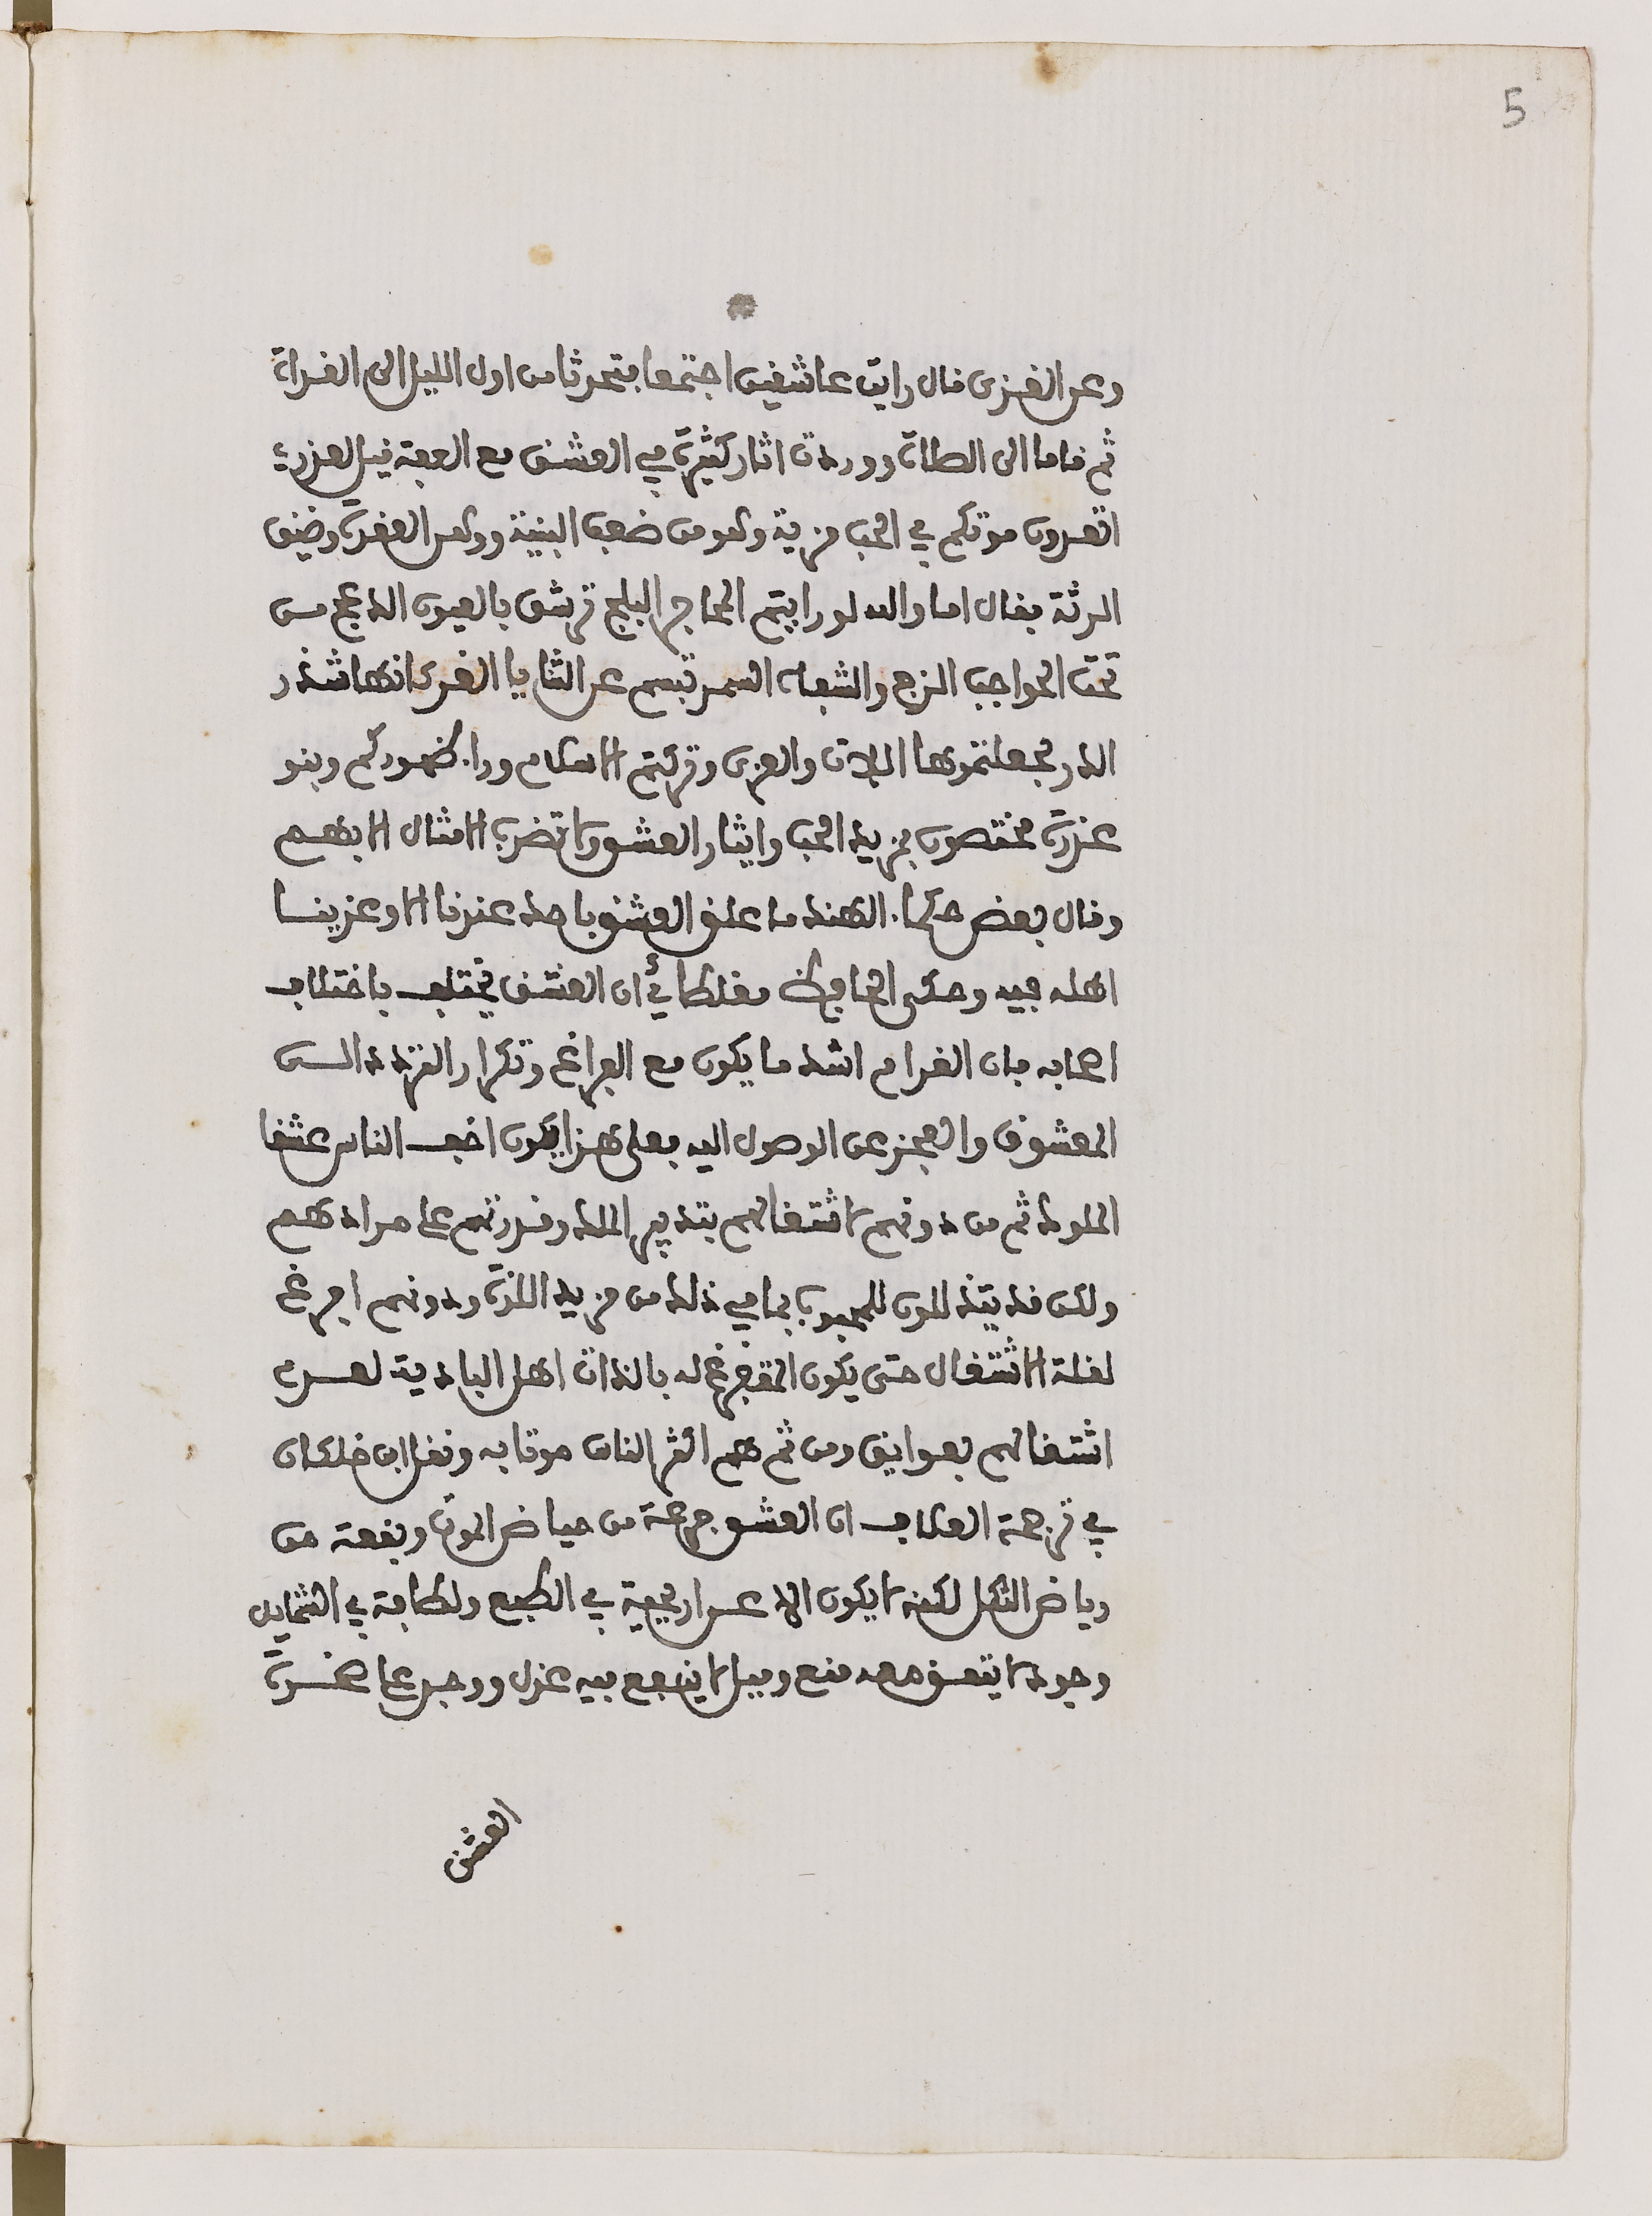 5
وعن الغزى قال رايت عاشقين اجتمعا بتحدثا من اول الليل الى الغداة
ثم قاما الى الصلاة ووردت اثار كثيرة في العشق مع العفة قيل لعذري
اتعدون موتكم في الحب مزية وهو من ضعف البنية ووهن العقدة وضيق
الرئة فقال اما والله لو رايتم المحاجر البلج ترشق بالعيون الدعج من
تحت الحواجب الزج والشفاه السمر تبسم عن الثنايا الغر كانها شذر
الدر لجعلتموها اللات والعزى وتركتم الاسلام وراء ظهوركم وبنو
عذرة مختصون بمزيد الحب وايثار العشق ولا تضرب الامثال الا بهم
وقال بعض حكماء الهند ما علق العشق باحد عندنا الا وعزينا
اهله فيه وحكى الحافظ مغلطائي ان العشق يختلف باختلاف
اصحابه فان الغرام اشد ما يكون مع الفراغ وتكرار التردد الى
المعشوق والعجز عن الوصول اليه فعلى هذا يكون اخف الناس عشقا
الملوك ثم من دونهم لاشتغالهم بتدبير الملك وقدرتهم على مرادهم
ولكن قد يتذللون للمحبوب بما في ذلك من مزيد اللذة ودونهم افرغ
لقلة الاشتغال حتى يكون المتفرغ له بالذات اهل البادية لعدم
اشتغالهم بعوايق ومن ثم هم اكثر الناس موتا به ونقل ابن خلكان
في ترجمة العلاف ان العشق جرعة من حياض الموت وبقعة من
رياض الثكل لكنه لا يكون الا عن اريحية في الطبع ولطافة في الشمايل
وجود لا يتفق معه منع وميل لا ينفع فيه عذل ووجد على صخرة
العشق